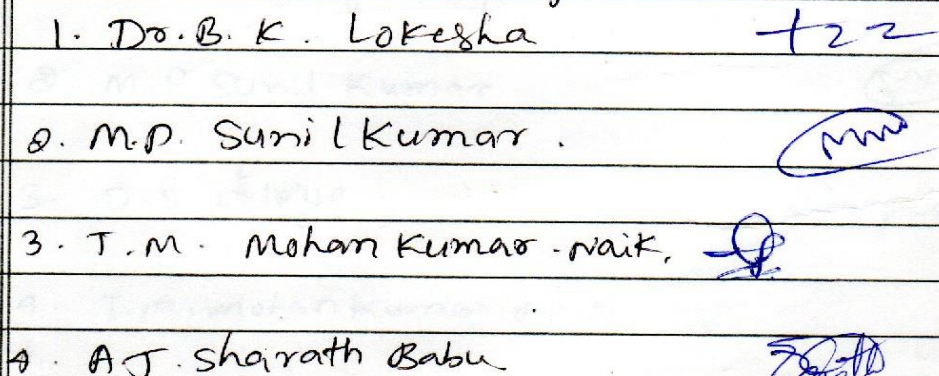 1. Dr. B. K. Lokesha
2. M.P. Sunil Kumar.
3. T.M. Mohan Kumar-Naik.
4. A J. Sharath Babu